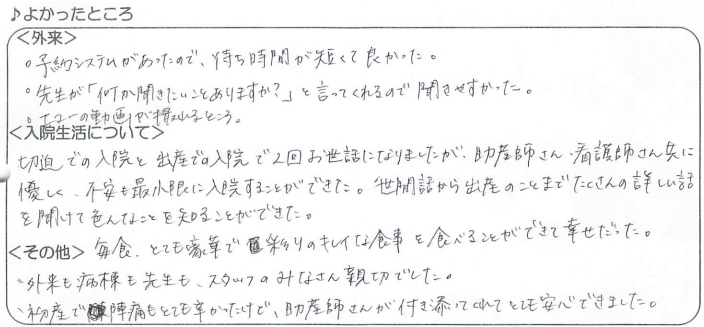 ♪よかったところ
<外来>
○予約システムがあったので、待ち時間が短くて良かった。
○先生が「何か聞きたいことありますか?」と言ってくれるので聞きやすかった。
○エコーの動画が撮れるところ。
<入院生活について>
切迫での入院と出産での入院で2回お世話になりましたが、助産師さん、看護師さん共に
優しく、不安も最小限に入院することができた。世間話から出産のことまでたくさんの詳しい話
を聞けて色んなことを知ることができた。
<その他> 毎食、とても豪華で彩りのキレイな食事を食べることができて幸せだった。
・外来も病棟も先生も、スタッフのみなさん親切でした。
・初産で陣痛もとても辛かったけど、助産師さんが付き添ってくれてとても安心できました。